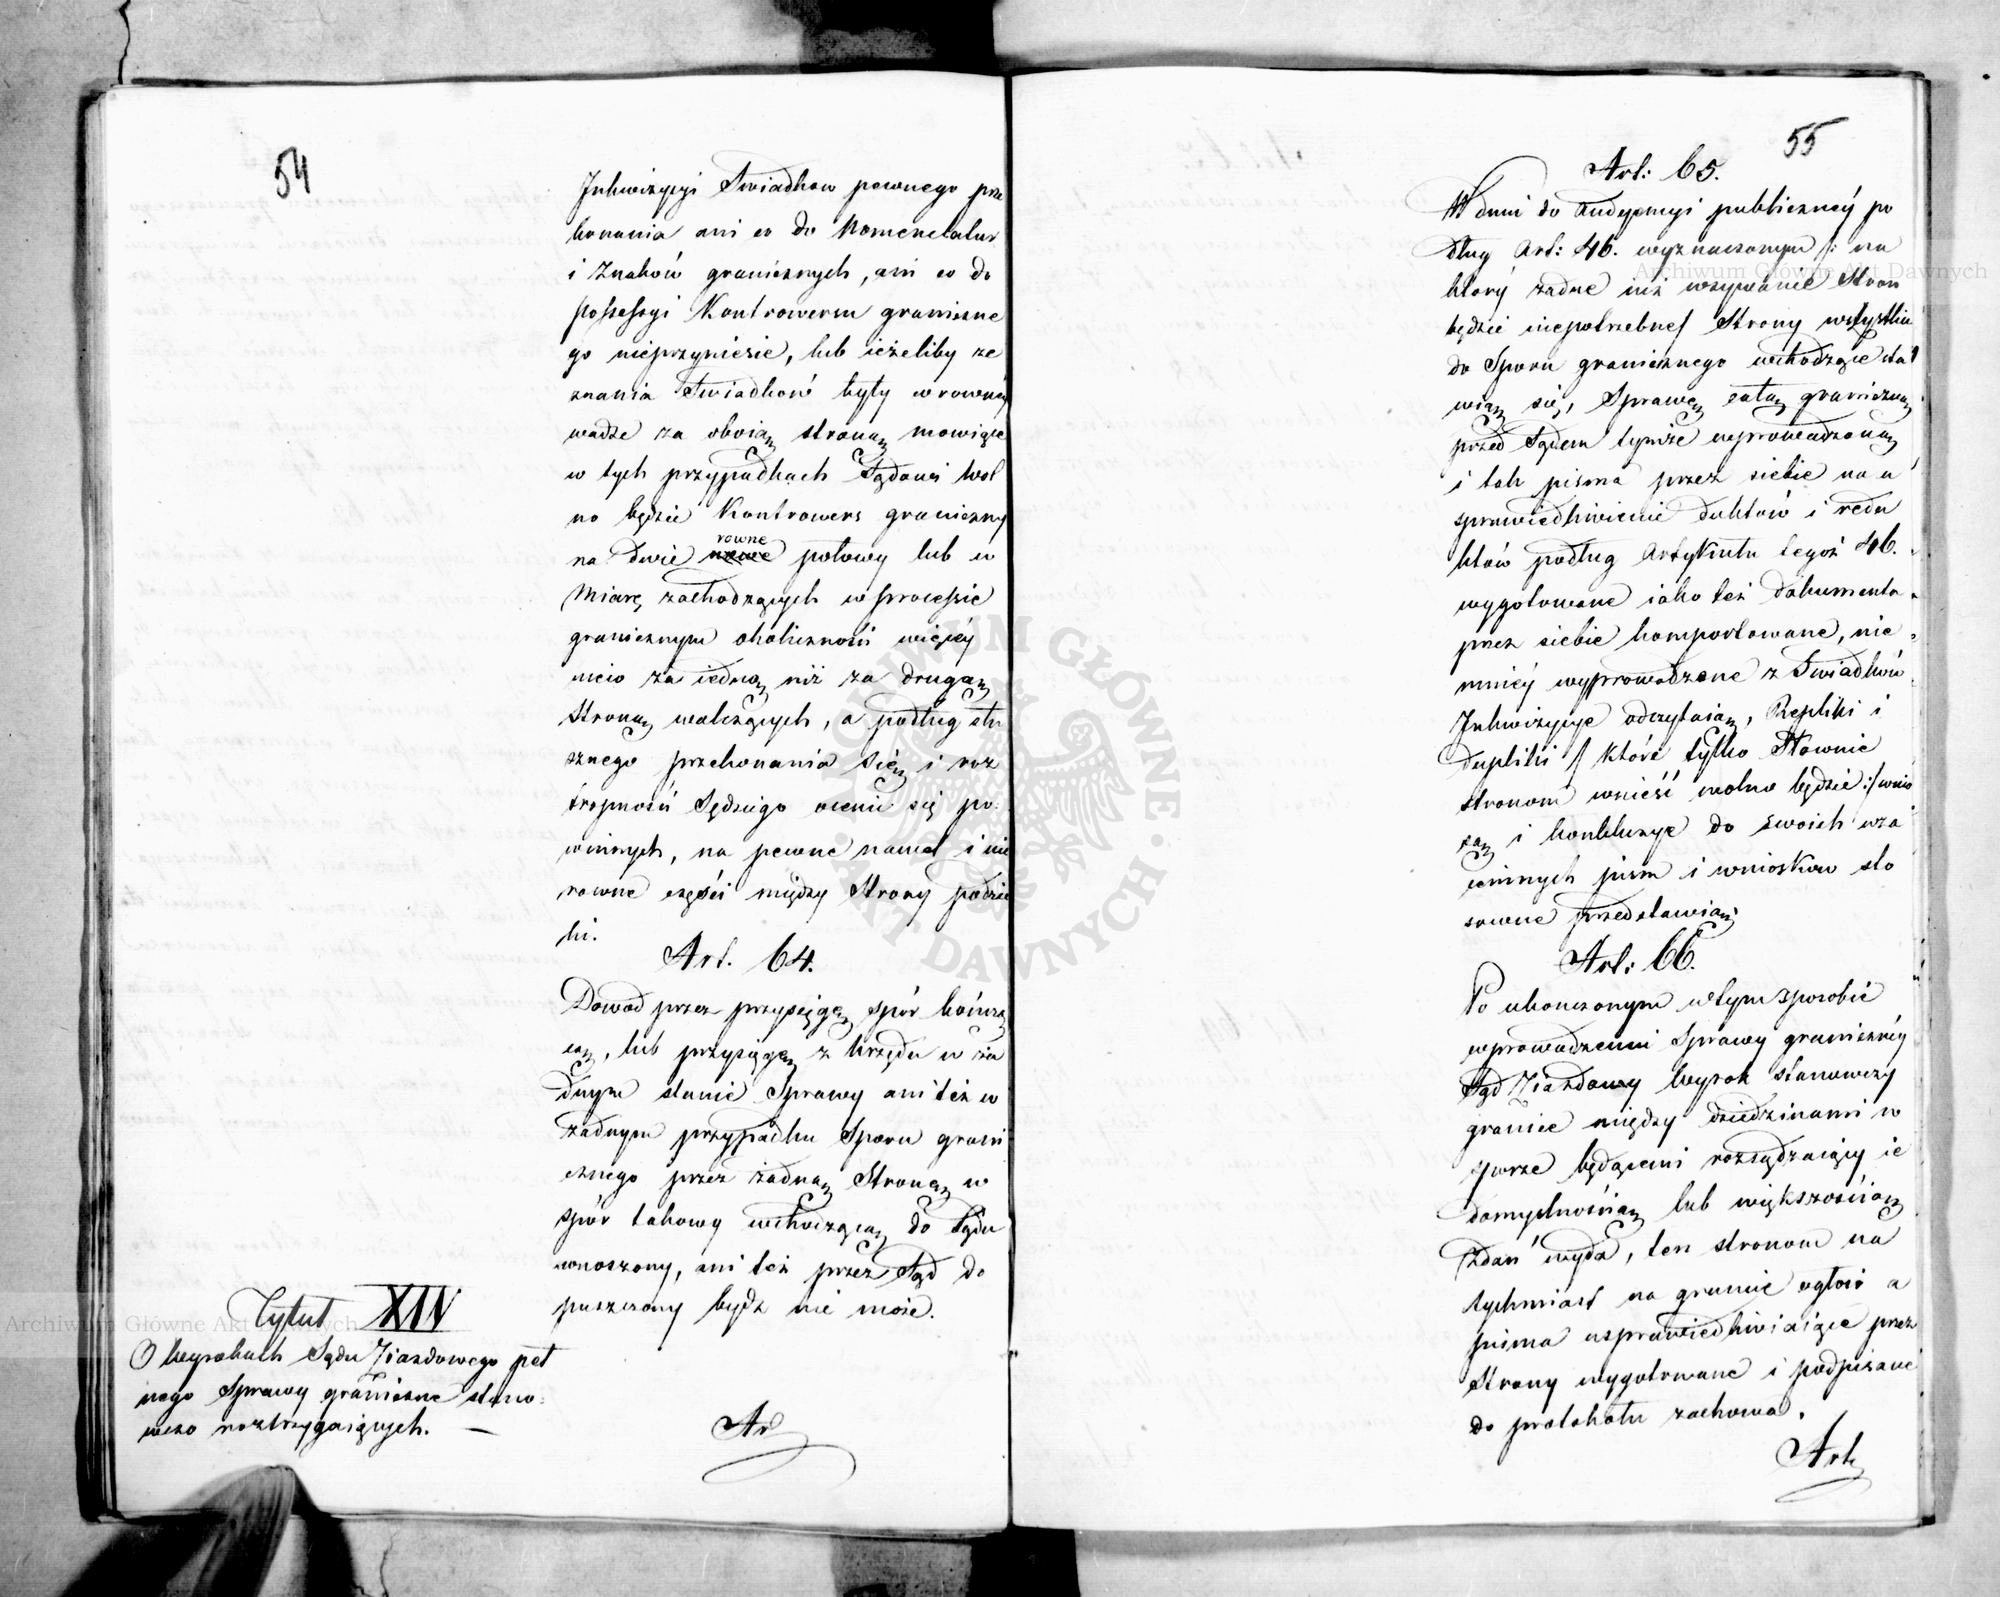 54
Inkwizycyi Swiadkow pewnego prze
konania ani co do Nomenclatur
i Znaków granicznych, ani co do
possessyi Kontrowersu graniczne
go nieprzyniesie, lub ieżeliby ze
znania Swiadków były wrowney
wadze za oboią stroną mowiące
w tych przypadkach Sądowi wol
no będzie Kontrowers graniczny
na dwie rowne połowy lub w
Miarę zachodzących w processie
granicznym okoliczności więcéy
nieco za iedną niż za drugą
Stroną walczących, a podług słu
sznego przekonania się i roz
tropności Sędziego ocenić się po
winnych, na pewne nawet i nie
rowne części między Strony podzie
lić.
Art. 64.
Dowod przez przysięgę spór kończą
cą, lub przysięgę z Urzędu w ża
dnym stanie Sprawy ani też w
żadnym przypadku Sporu grani
cznego przez żadną Stronę w
spór takowy wchodzącą do Sądu
wnoszony, ani też przez Sąd do
puszczony bydź nie może.
Tytuł XIV
O Wyrokach Sądu Ziazdowego peł
nego Sprawy graniczne stano=
wczo roztrzygaiących. —
Ar
55
Art: 65.
W dniu do Audyencyi publicznéy po
dług Art: 46. wyznaczonym /: na
który żadne iuż wzywanie Stron
będzie niepotrzebne/ Strony wszystkie
do Sporu granicznego wchodzące sta
wią się, Sprawę całą graniczną
przed Sądem tymże wprowadzoną
i tak pisma przez siebie na u
sprawiedliwienie duktów i redu
któw podług Artykułu tegoż 46.
wygotowane iako też dokumenta
przez siebie komportowane, nie
mniéy wyprowadzone z Swiadków
Inkwizycye odczytaią, Repliki i
dupliki / które tylko Słownie
stronom wnieść wolno będzie :/ wnio
są i konkluzye do swoich wza
iemnych pism i wnioskow sto
sowne przedstawią.
Art: 66.
Po ukończonym w tym sposobie
wprowadzeniu Sprawy granicznéy
Sąd Ziazdowy Wyrok stanowczy
granice między dziedzinami w
sporze będącemi rozsądzaiący ie
domyślnością lub większością
zdań wyda, ten stronom na
tychmiast na gruncie ogłosi a
pisma usprawiedliwiaiące przez
Strony wygotowane i podpisane
do protokołu zachowa.
Art
Archiwum Główne Akt Dawnych
Archiwum Główne Akt Dawnych
ARCHIWUM GŁÓWNE · AKT DAWNYCH ·